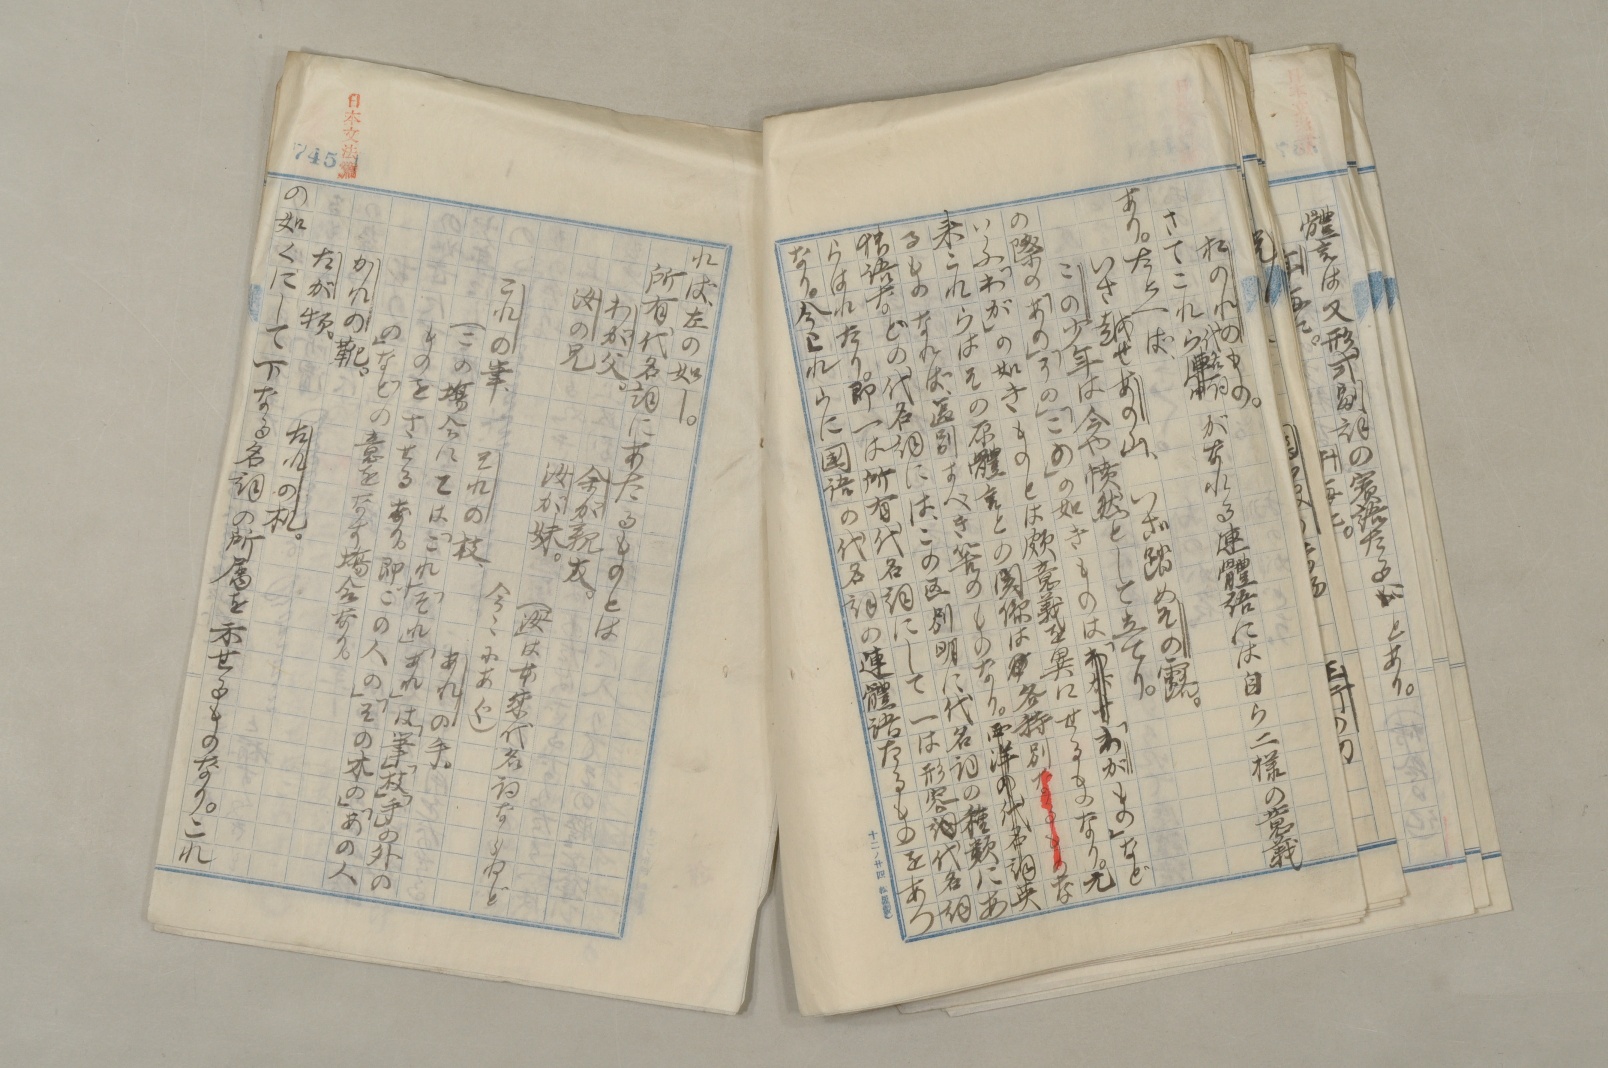 體言は又形式副詞の賓語たる とあり。
松のれのもの。
さてこれら代名詞がなれる連體語には自ら二様の意義
あり。たとへば、
いざ踏めその露。
いざ見せあの山、
この少年は今や憤然として立てり。
の際の「あの」「その」「この」の如きものは「わがせ」「わがもの」など
いふ「わが」の如きものとは頗意義を異にせるものなり。元
来これらはその原體言との関係は各特別 な
るものなれば、區別すべき筈のものなり。西洋の代名詞英
独語などの代名詞には、この区別明に代名詞の種類にあ
らはれたり。即一は所有代名詞にして一は形容詞代名詞
なり。今これらに国語の代名詞の連體語たるものをあつ
十二ノ廿四 松屋製
日本文法論
745
れば、左の如し。
所有代名詞にあたるものとは
わが父。 余が親友。
汝の兄 汝が妹。
(汝は本来代名詞ならねど
今こゝにあぐ)
これの筆、 それの枝、 あれの手。
(この場合にては「これ」「それ」「あれ」は「筆」「枝」「手」の外の
ものをさせるなり。即「この人の」「その木の」「あの人
の」などの意をなす場合なり。
かれの靴、
たが頬。 たれの札。
の如くにして下なる名詞の所属を示せるものなり。これ